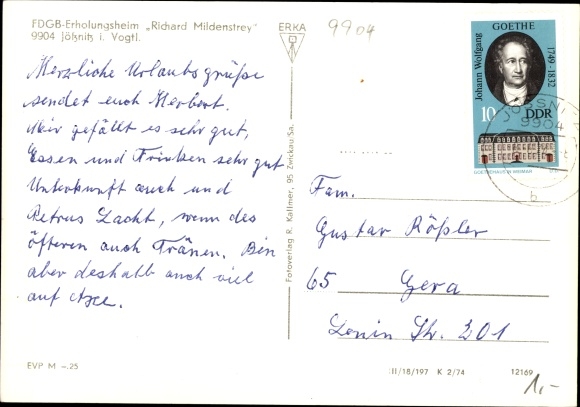 FDGB-Erholungsheim „Richard Mildenstrey"
9904 Jößnitz i. Vogtl.
ERKA
9904
Herzliche Urlaubsgrüße
sendet euch Herbert.
Mir gefällt es sehr gut,
Essen und Trinken sehr gut
Unterkunft auch und
Petrus Lacht, wenn des
öfteren auch Tränen. Bin
aber deshalb auch viel
auf Axe.
EVP M –.25
Fotoverlag R. Kallmer, 95 Zwickau/Sa.
Johann Wolfgang
GOETHE
1749-1832
10
DDR
GOETHEHAUS IN WEIMAR
JÖSSNI
9904
b
Fam.
Gustav Rößler
65 Gera
Lenin Str. 201
III/18/197 K 2/74 12169
1,-